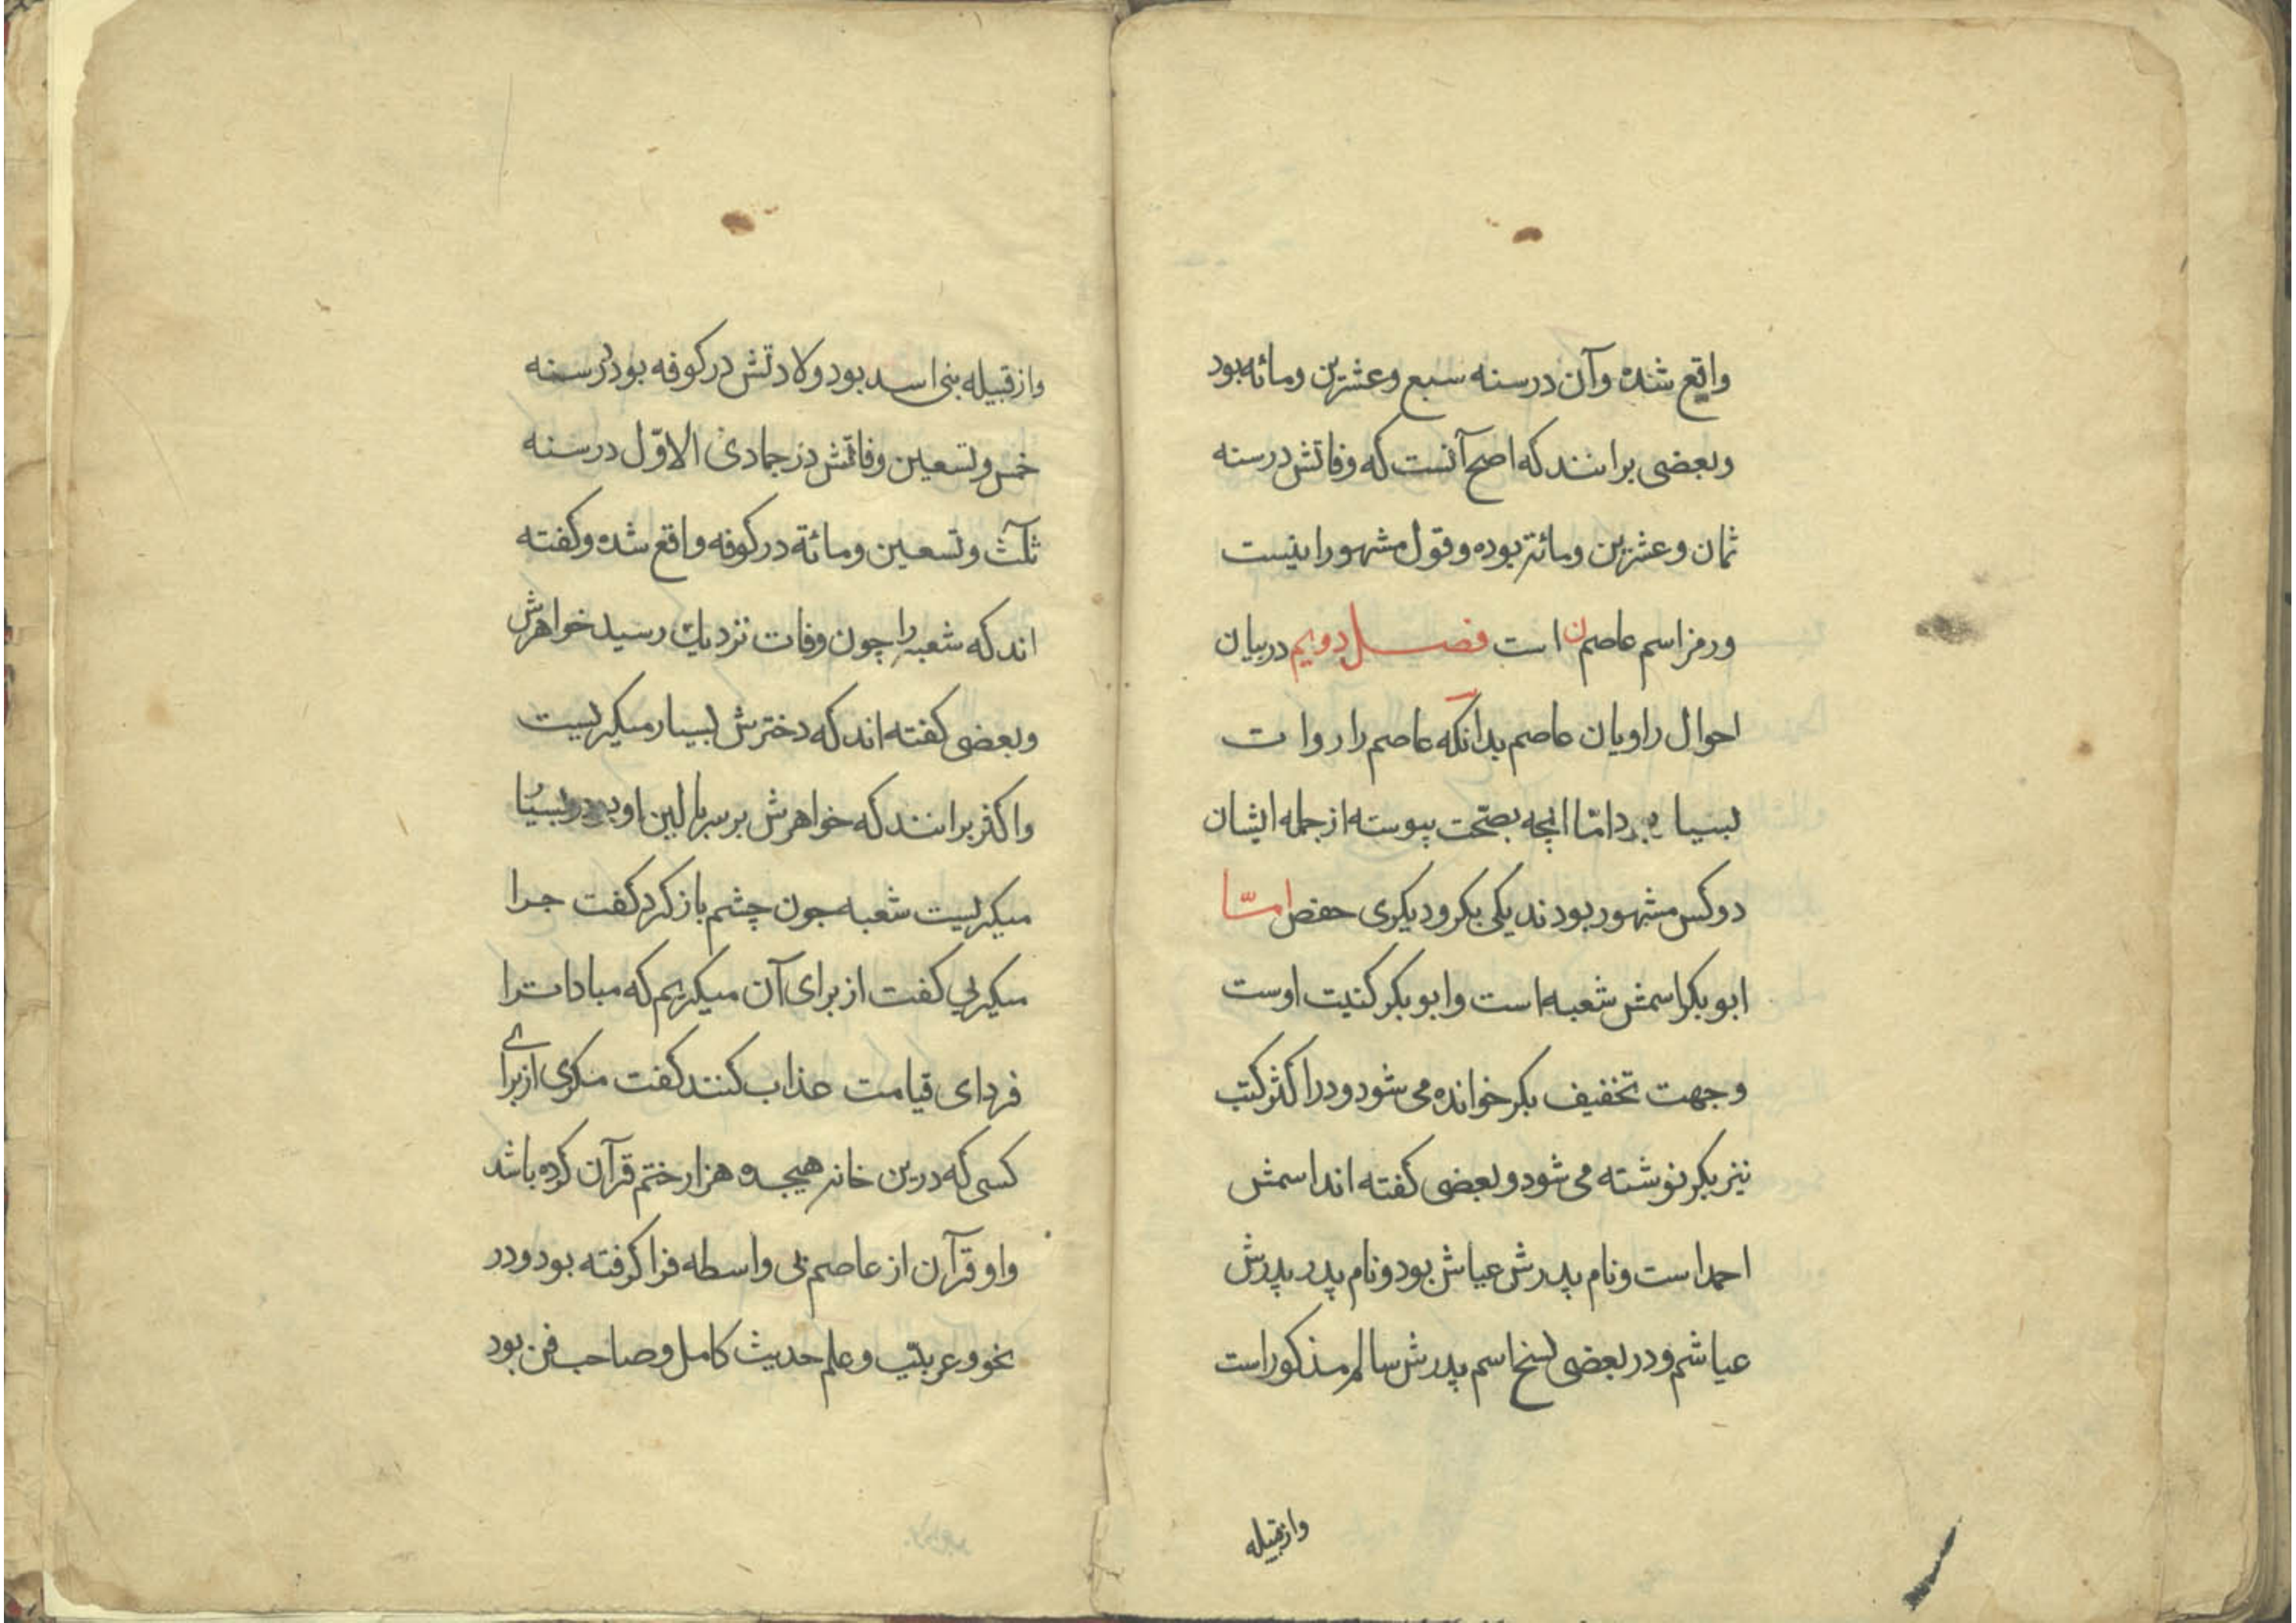 واقع شده وآن درسنه سبع وعشرین ومائه بود
وبعضی برانند که اصح آنست که وفاتش درسنه
ثمان وعشرین ومائة بوده وقول مشهور اینست
ورمز اسم عاصم ن است فصل دویم دربیان
احوال راویان عاصم بدانکه عاصم را روات
بسیا بود امّا انچه بصحّت پیوسته از جمله ایشان
دوکس مشهور بودند یکی بکر ودیکری حفص امّا
ابوبکر اسمش شعبه است وابوبکر کنیت اوست
وجهت تخفیف بکر خوانده می شود ودر اکثر کتب
نیز بکر نوشته می شود وبعضی کفته اند اسمش
احمد است ونام پدرش عیاش بود ونام پدر پدرش
عیاشم ودر بعضی نسخ اسم پدرش سالم مذکور است
وازقبیله
وازقبیله بنی اسد بود ولادتش درکوفه بود درسنه
خمس وتسعین وفاتش در جمادی الاوّل درسنه
ثلث وتسعین ومائة درکوفه واقع شده وکفته
اند که شعبه را چون وفات نزدیك رسید خواهرش
وبعضی کفته اند که دخترش بسیار میکریست
واکثر برانند که خواهرش برسر بالین او بود بسیار
میکریست شعبه چون چشم باز کرد کفت چرا
میکریی کفت از برای آن میکریم که مبادا ترا
فردای قیامت عذاب کنند کفت مکری از برای
کسی که درین خانه هیجده هزار ختم قرآن کرده باشد
واو قرآن از عاصم بی واسطه فرا کرفته بود ودر
نحو وعربیّت وعلم حدیث کامل وصاحب فن بود